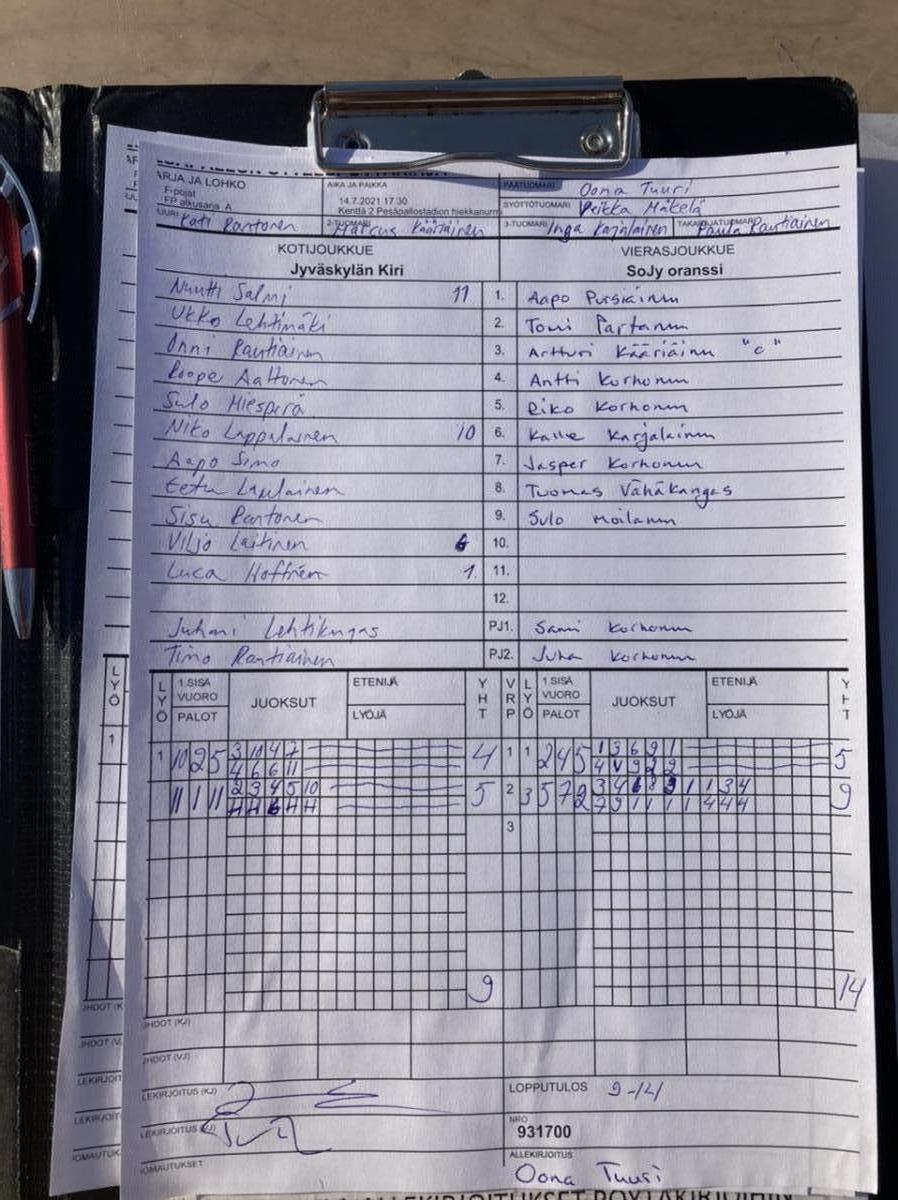 ARJA JA LOHKO
F-pojat
FP alkusarja A
AIKA JA PAIKKA
14.7.2021 17.30
Kenttä 2 Pesäpallostadion hiekkanurmi
PÄÄTUOMARI Oona Tuuri
SYÖTTÖTUOMARI Veikka Mäkelä
Kati Rantonen
2-TUOMARI Marcus Kääriäinen
3-TUOMARI Inga Karjalainen
TAKARAJATUOMARI Paula Rautiainen
KOTIJOUKKUE VIERASJOUKKUE
Jyväskylän Kiri SoJy oranssi
Nuutti Salmi 11 1. Aapo Pursiainen
Ukko Lehtimäki 2. Tomi Partanen
Onni Rautiainen 3. Artturi Kääriäinen "c"
Roope Aaltonen 4. Antti Korhonen
Sulo Hiesperä 5. Eiko Korhonen
Niko Lappalainen 10 6. Kalle Karjalainen
Aapo Simo 7. Jasper Korhonen
Eetu Laulainen 8. Tuomas Vähäkangas
Sisu Rantonen 9. Sulo Moilanen
Viljo Laitinen 6 10.
Luca Hoffrén 1. 11.
12.
Juhani Lehtikangas PJ1. Sami Korhonen
Timo Rautiainen PJ2. Juha Korhonen
LYÖ 1.SISÄ VUORO PALOT JUOKSUT ETENIJÄ LYÖJÄ YHT VRP LYÖ 1.SISÄ VUORO PALOT JUOKSUT ETENIJÄ LYÖJÄ YHT
1 10 2 5 3 10 4 7 4 1 1 2 4 5 1 3 6 9 1 5
4 6 6 11
11 1 11 2 3 4 5 10 5 2 3 5 7 2 3 4 6 8 9 1 1 3 4 9
7 9 1 1 1 1 4 4 4
3
9 14
LYÖ
1
JHDOT (KJ)
JHDOT (VJ)
LEKIRJOITUS (KJ)
LOPPUTULOS 9-14
LEKIRJOITUS (VJ)
NRO
931700
IOMAUTUKSET
ALLEKIRJOITUS
Oona Tuuri